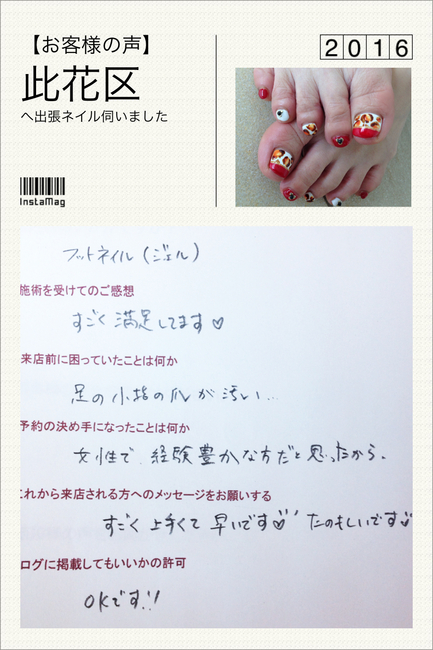 【お客様の声】
此花区
へ出張ネイル伺いました
2016
InstaMag
フットネイル(ジェル)
施術を受けてのご感想
すごく満足してます♡
来店前に困っていたことは何か
足の小指の爪が汚い...
予約の決め手になったことは何か
女性で、経験豊かな方だと思ったから。
これから来店される方へのメッセージをお願いする
すごく上手くて早いです♡'' たのもしいです
ログに掲載してもいいかの許可
OKです!!